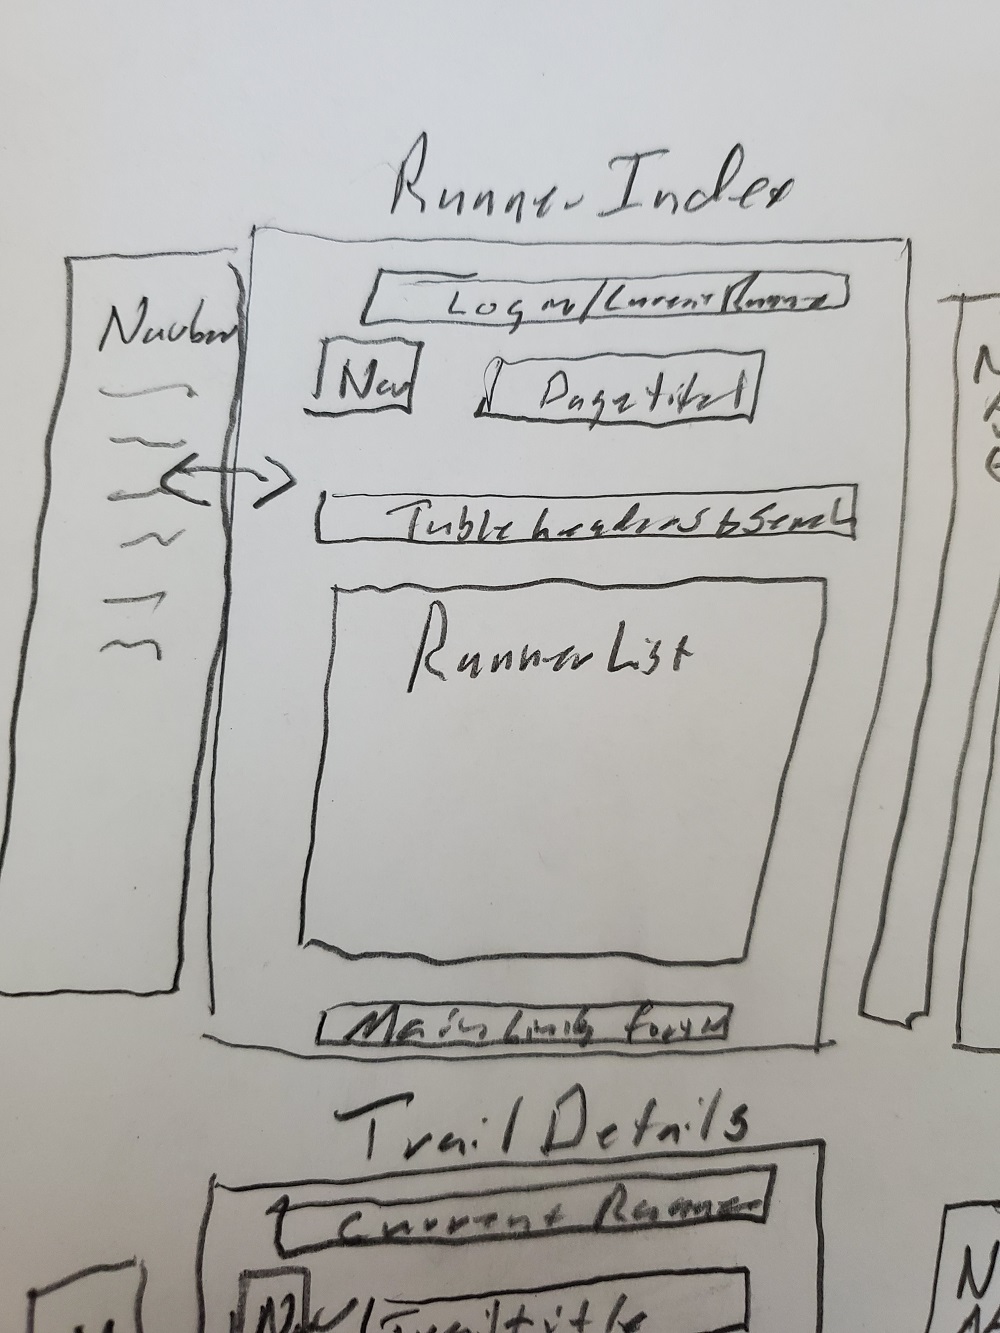 Runner Index
Navbar
Log in/Current Runner
Nav
Page titel
Table headers & Search
Runner List
Main Links
Trail Details
Current Runner
Nav
Trail title
N